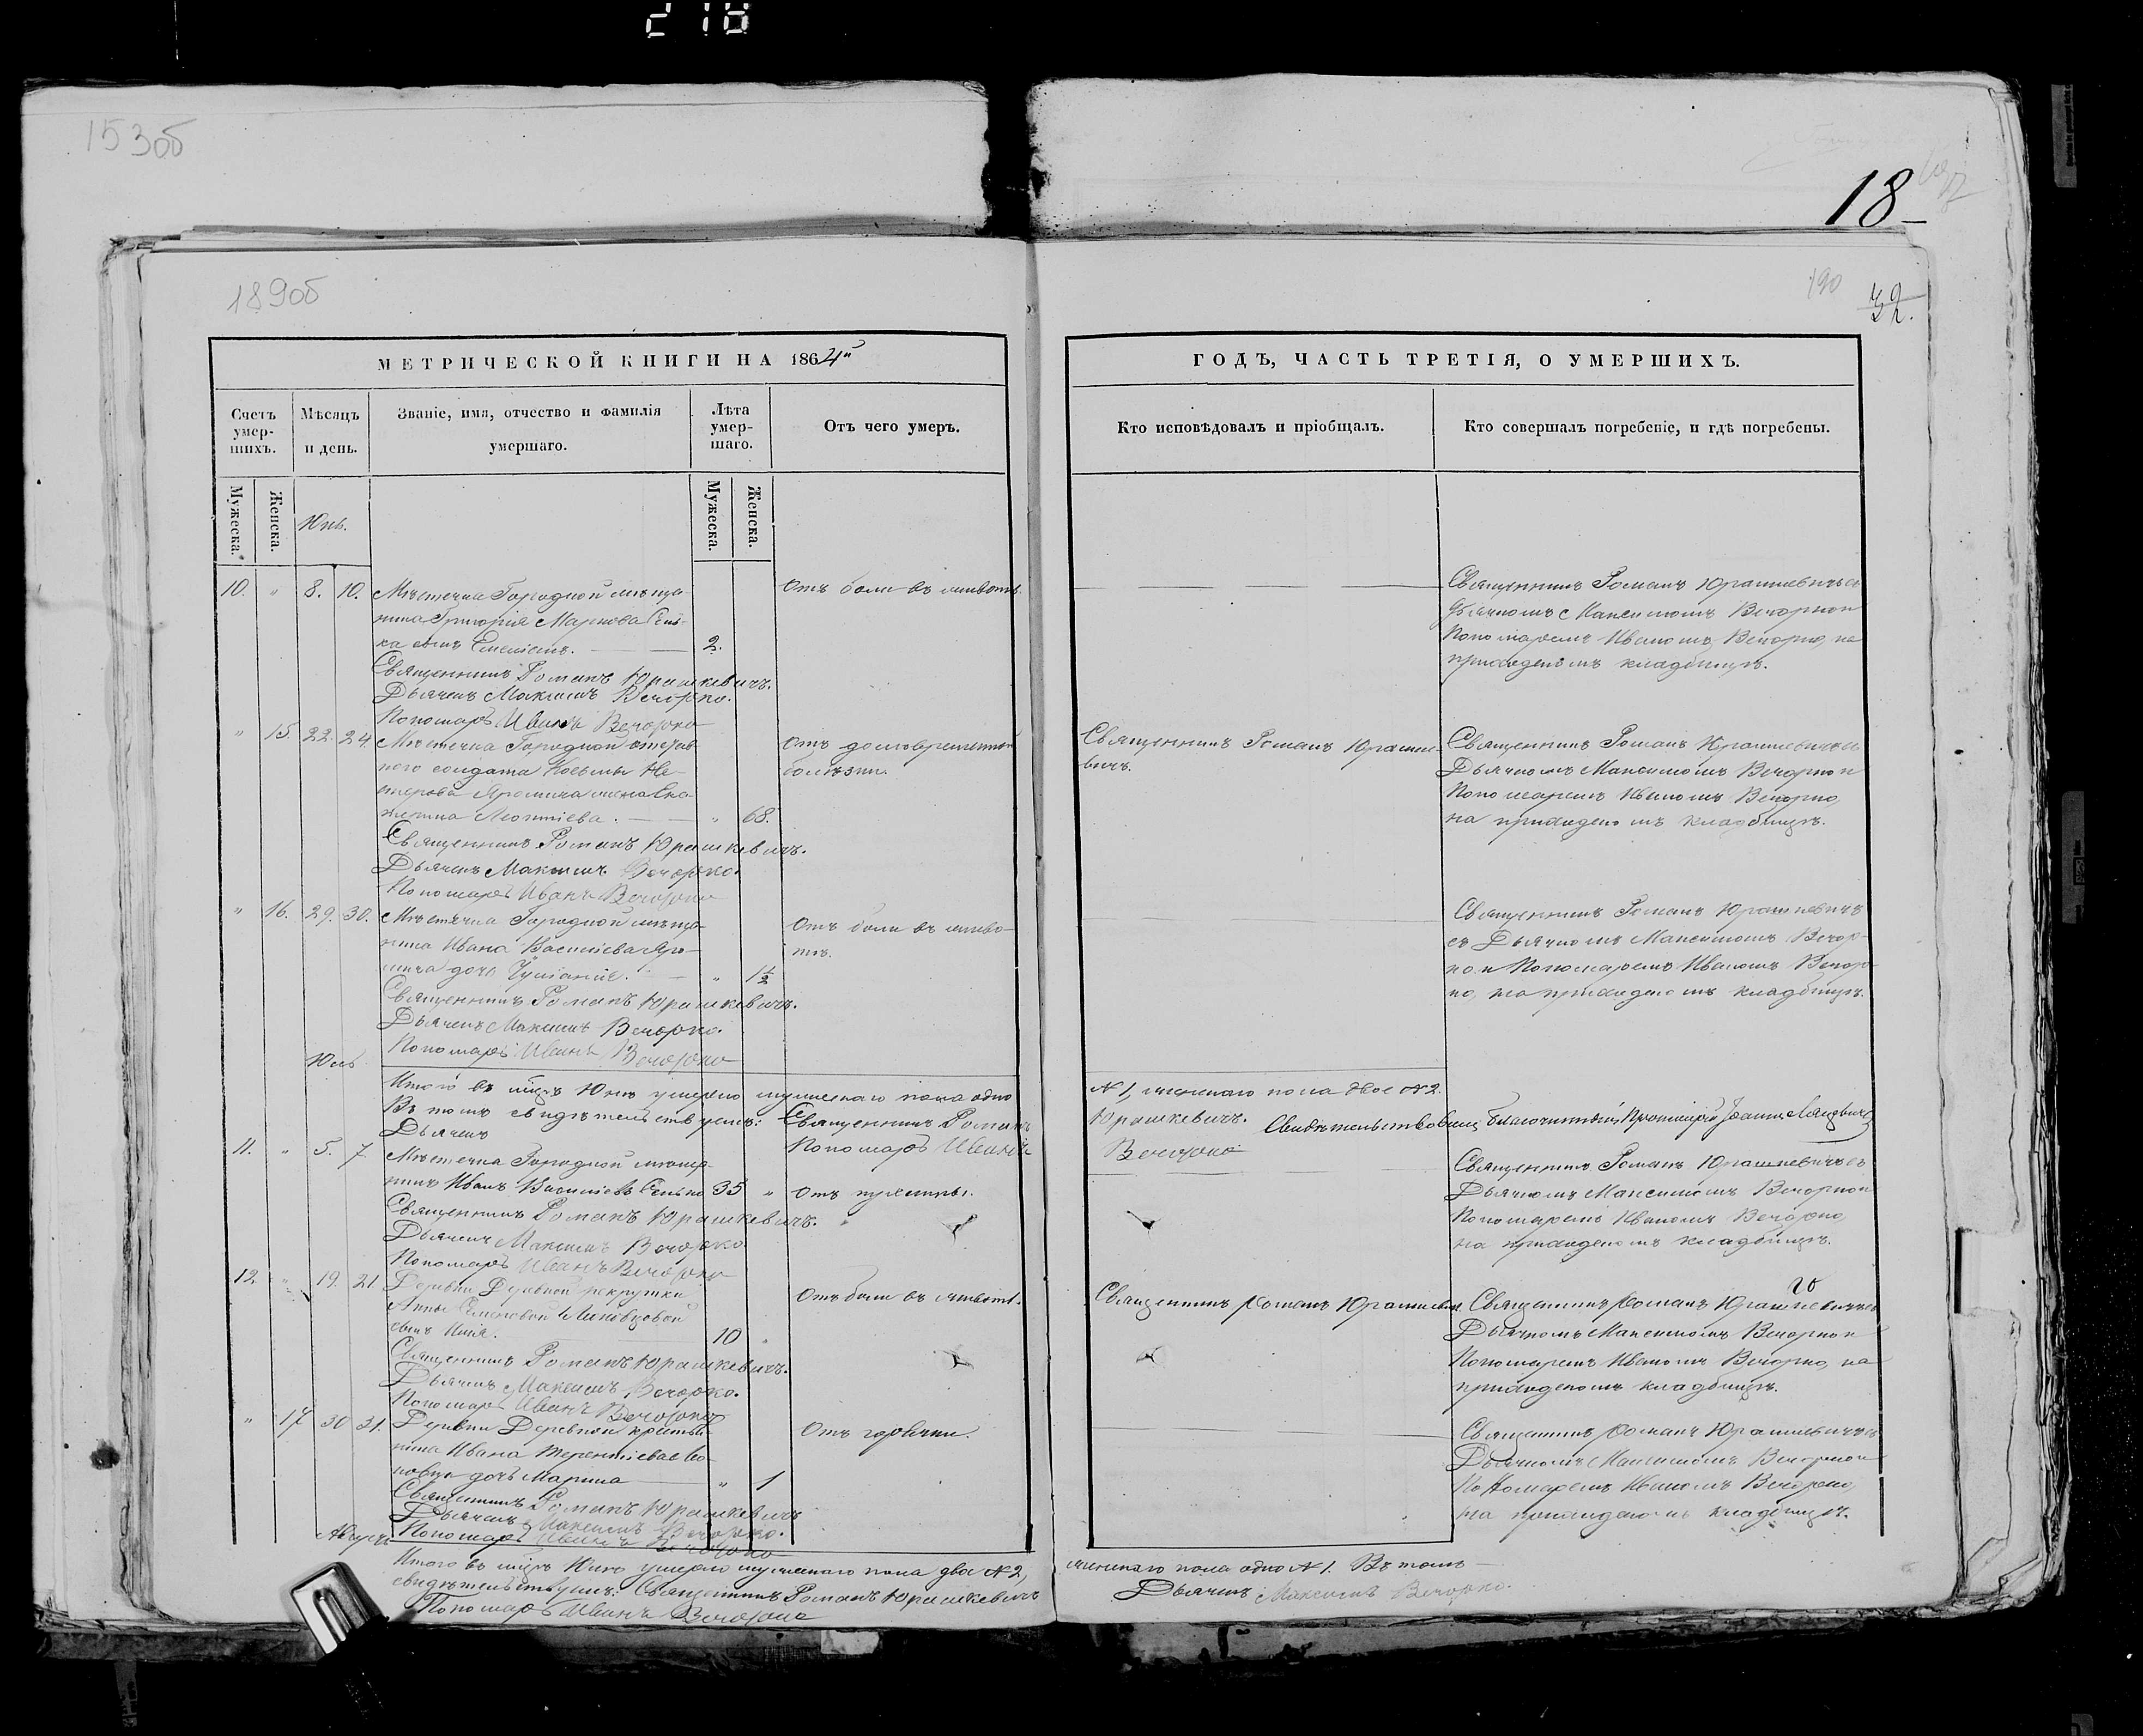 218
153об
18
189об
190
32.
МЕТРИЧЕСКОЙ КНИГИ НА 1864й
ГОДЪ, ЧАСТЬ ТРЕТІЯ, О УМЕРШИХЪ.
Счетъ умер-
шихъ.
Мѣсяцъ
и день.
Званіе, имя, отчество и фамилія
умершаго.
Лѣта
умер-
шаго.
Отъ чего умеръ.
Кто исповѣдовалъ и пріобщалъ.
Кто совершалъ погребеніе, и гдѣ погребены.
Мужеска.
Женска.
Юнь.
Мужеска.
Женска.
10. " 8. 10. Мѣстечка Городной мѣща-
нина Григорія Маркова Сень-
ка сынъ 2.
Отъ боли въ животѣ.
Священникъ Романъ Юрашкевичъ.
Дьячекъ Максимъ Вечорко.
Пономарь Иванъ Вечорко
Священникъ Романъ Юрашкевичъ съ
Дьячкомъ Максимомъ Вечоркой
Пономаремъ Иваномъ Вечорко, на
приходскомъ кладбищѣ.
" 15. 22. 24. Мѣстечка Городной отстав-
наго солдата Козьмы Не-
стерова Яромича жена
Леонтіева. " 68.
Отъ долговременной
болѣзни.
Священникъ Романъ Юрашкевичъ.
Дьячекъ Максимъ Вечорко.
Пономарь Иванъ Вечорко
Священникъ Романъ Юрашке-
вичъ.
Священникъ Романъ Юрашкевичъ съ
Дьячкомъ Максимомъ Вечоркой
Пономаремъ Иваномъ Вечорко,
на приходскомъ кладбищѣ.
" 16. 29. 30. Мѣстечка Городной мѣща-
нина Ивана Василіева Яро-
мича дочь Іуліанія. " 1½
Отъ боли въ живо-
тѣ.
Священникъ Романъ Юрашкевичъ.
Дьячекъ Максимъ Вечорко.
Пономарь Иванъ Вечорко
Священникъ Романъ Юрашкевичъ
съ Дьячкомъ Максимомъ Вечор-
ко и Пономаремъ Иваномъ Вечор-
ко, на приходскомъ кладбищѣ.
Юль
Итого въ мѣсяцѣ Юнѣ умерло мужескаго пола одно
№ 1, женскаго пола двое № 2.
Въ томъ свидѣтельствуемъ: Священникъ Романъ
Юрашкевичъ. Свидѣтельствовалъ Благочинный, Протоіерей Іоаннъ
Дьячекъ
Пономарь Иванъ
Вечорко
11. " 5. 7. Мѣстечка Городной мѣща-
нинъ Иванъ Василіевъ Сенько 35 " Отъ пухлины.
Священникъ Романъ Юрашкевичъ.
Дьячекъ Максимъ Вечорко
Пономарь Иванъ Вечорко
Священникъ Романъ Юрашкевичъ съ
Дьячкомъ Максимомъ Вечоркой
Пономаремъ Иваномъ Вечорко,
на приходскомъ кладбищѣ.
12. " 19. 21. Деревни Деревной рекрутки
Анны
сынъ Илія. 10 "
Отъ боли въ животѣ.
Священникъ Романъ Юрашкевичъ.
Дьячекъ Максимъ Вечорко.
Пономарь Иванъ Вечорко
Священникъ Романъ Юрашкевичъ
Священникъ Романъ Юрашкевичъ съ
Дьячкомъ Максимомъ Вечоркой
Пономаремъ Иваномъ Вечорко, на
приходскомъ кладбищѣ.
" 17 30 31. Деревни Деревной крестья-
нина Ивана Терентіева
дочь Марина " 1
Отъ горячки.
Священникъ Романъ Юрашкевичъ
Дьячекъ Максимъ Вечорко.
Пономарь Иванъ Вечорко
Священникъ Романъ Юрашкевичъ съ
Дьячкомъ Максимомъ Вечоркой
Пономаремъ Иваномъ Вечорко,
на приходскомъ кладбищѣ.
Августъ
Итого въ мѣсяцѣ Юлѣ умерло мужескаго пола двое № 2,
женскаго пола одно № 1. Въ томъ
свидѣтельствуемъ: Священникъ Романъ Юрашкевичъ
Дьячекъ Максимъ Вечорко.
Пономарь Иванъ Вечорко